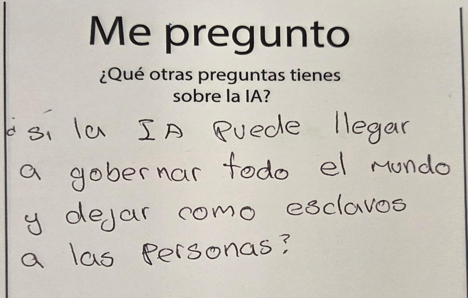 Me pregunto
¿Qué otras preguntas tienes
sobre la IA?
¿si la IA puede llegar
a gobernar todo el mundo
y dejar como esclavos
a las personas?